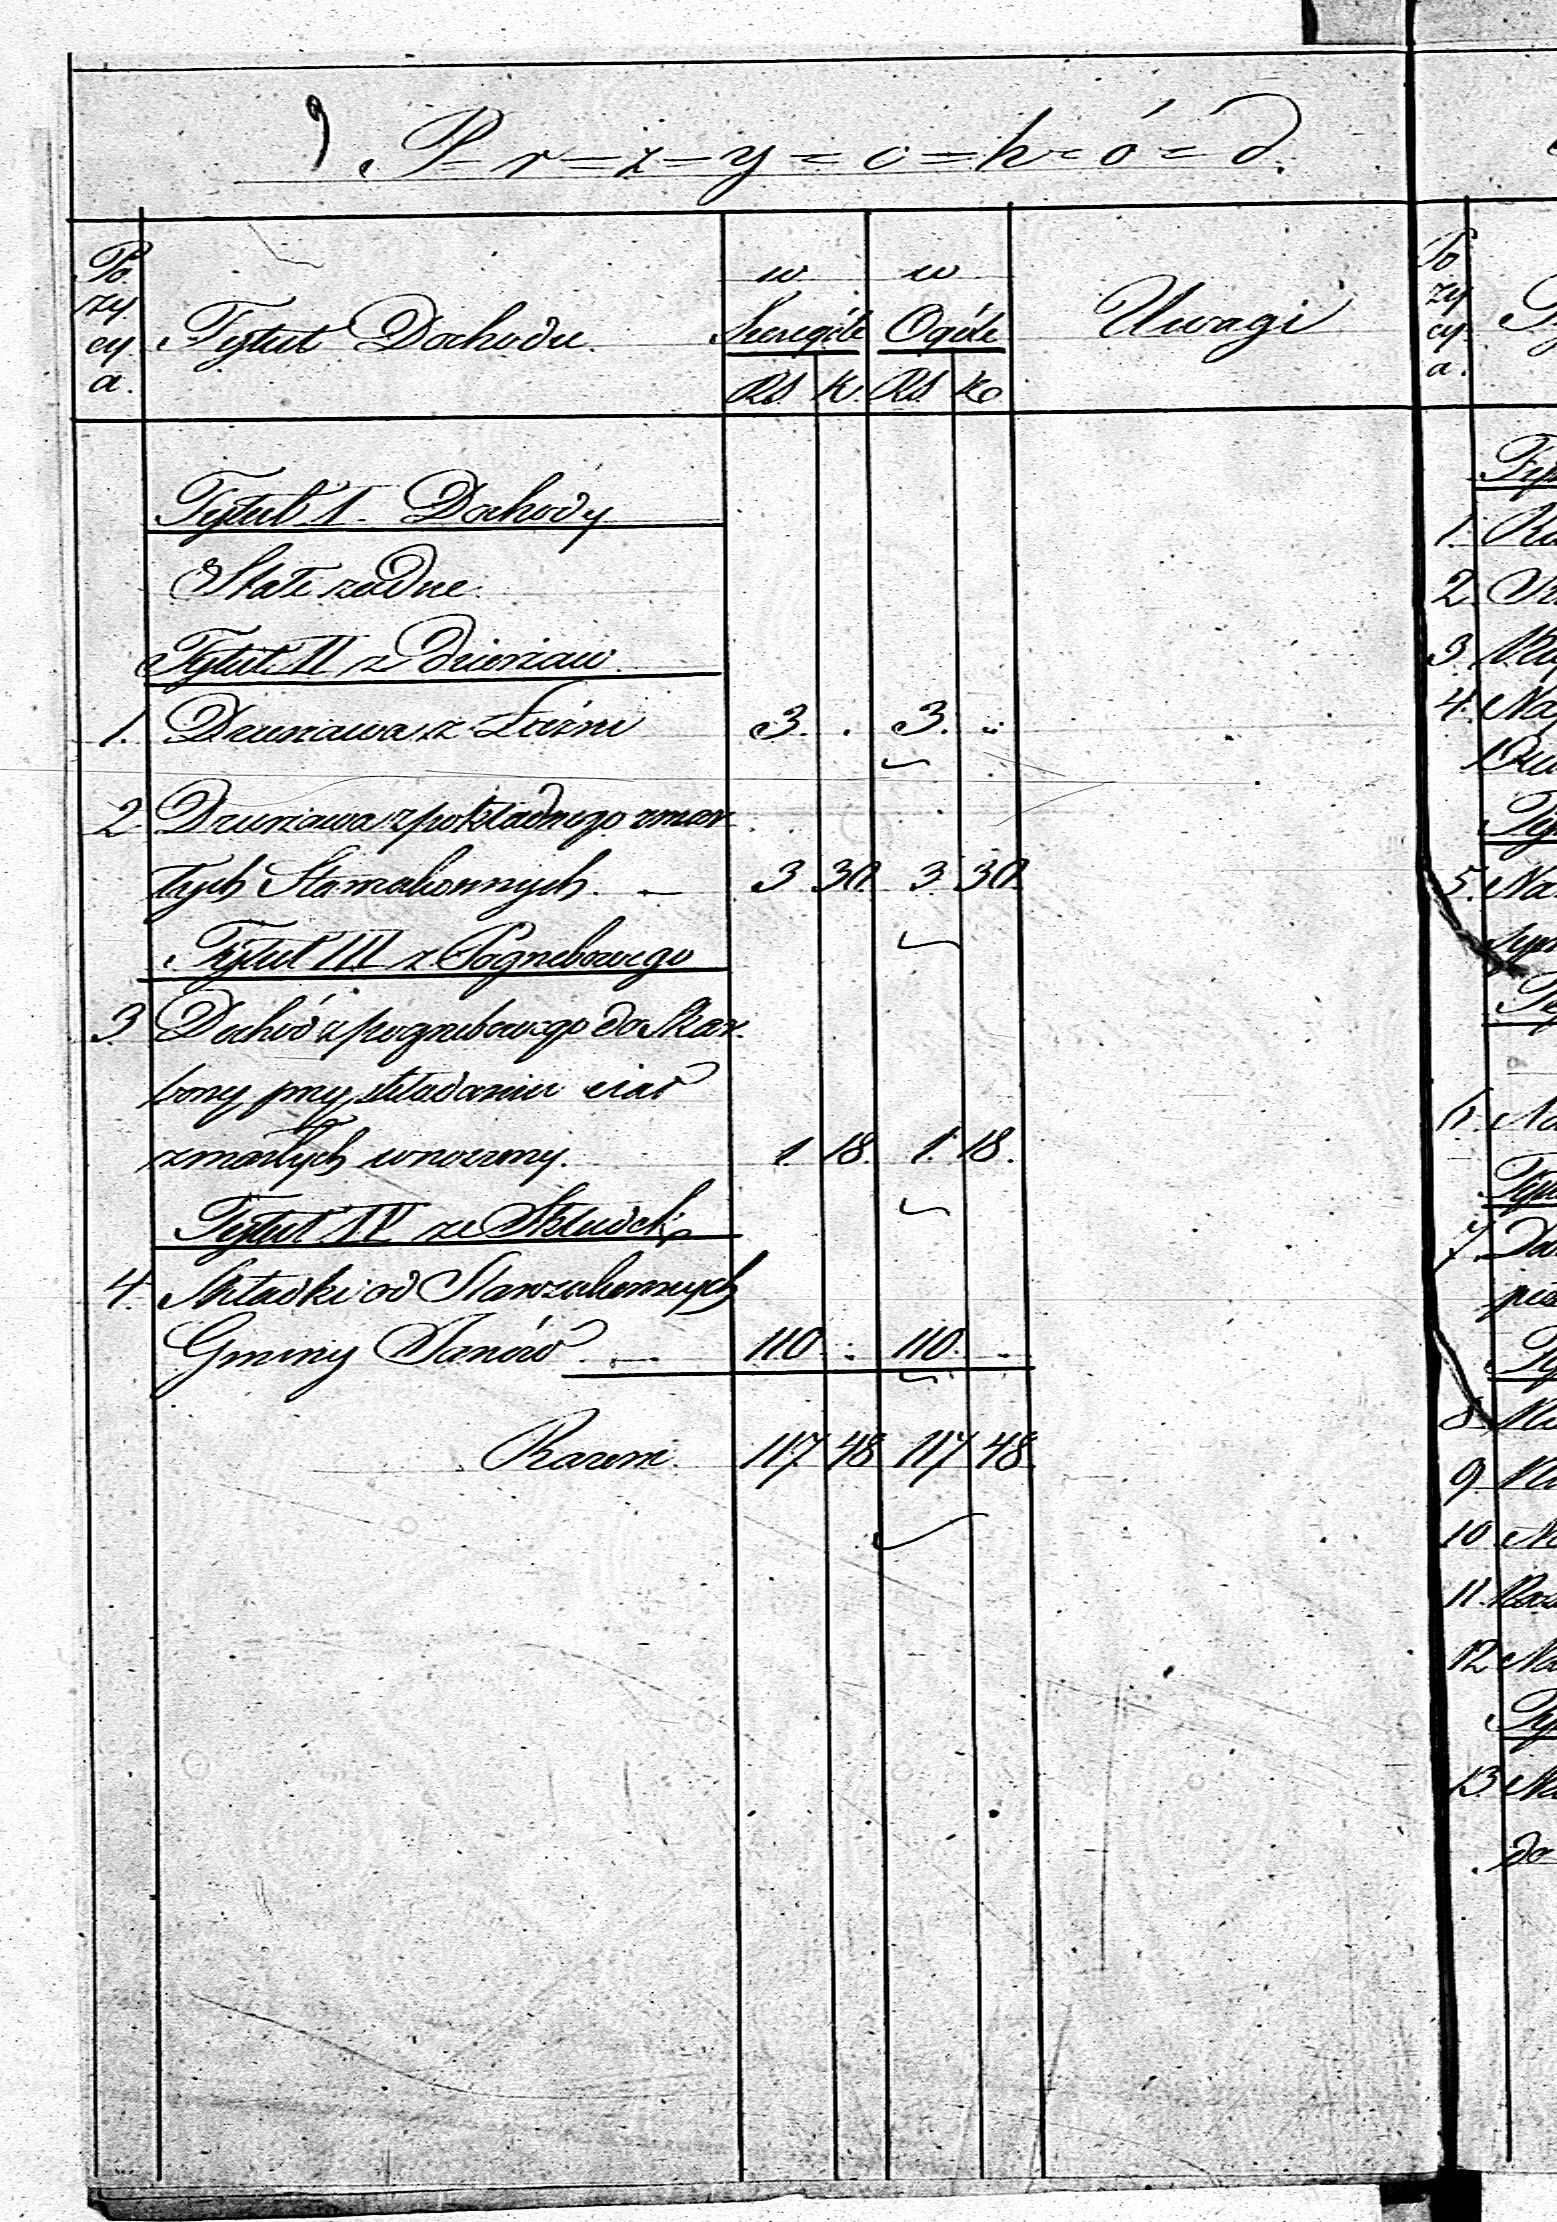 P=r=z=y=c=h=ó=d.
Po
zy
cy
a.
Tytuł Dochodu.
w
Szczególe
Rs. k.
w
Ogóle
Rs k
Uwagi
Tytuł I. Dochody
Stałe żadne.
Tytuł II z Dzierżaw
1. Dzierżawa z Łaźni 3. . 3. .
2. Dzierżawa z pokładnego zmar
łych Starozakonnych. — 3 30. 3. 30.
Tytuł III z Pogrzebowego
3 Dochód z pogrzebowego do Skar
bony przy składaniu ciał
zmarłych wnoszony. 1. 18. 1. 18.
Tytuł IV ze Składek
4. Składki od Starozakonnych
Gminy Janów — 110. . 110. .
Razem. 117 48 117 48.
Po
zy
cy
a.
1.
2.
3.
4.
5. Na
6. Na
7.
8
9
10
11.
12
13
do